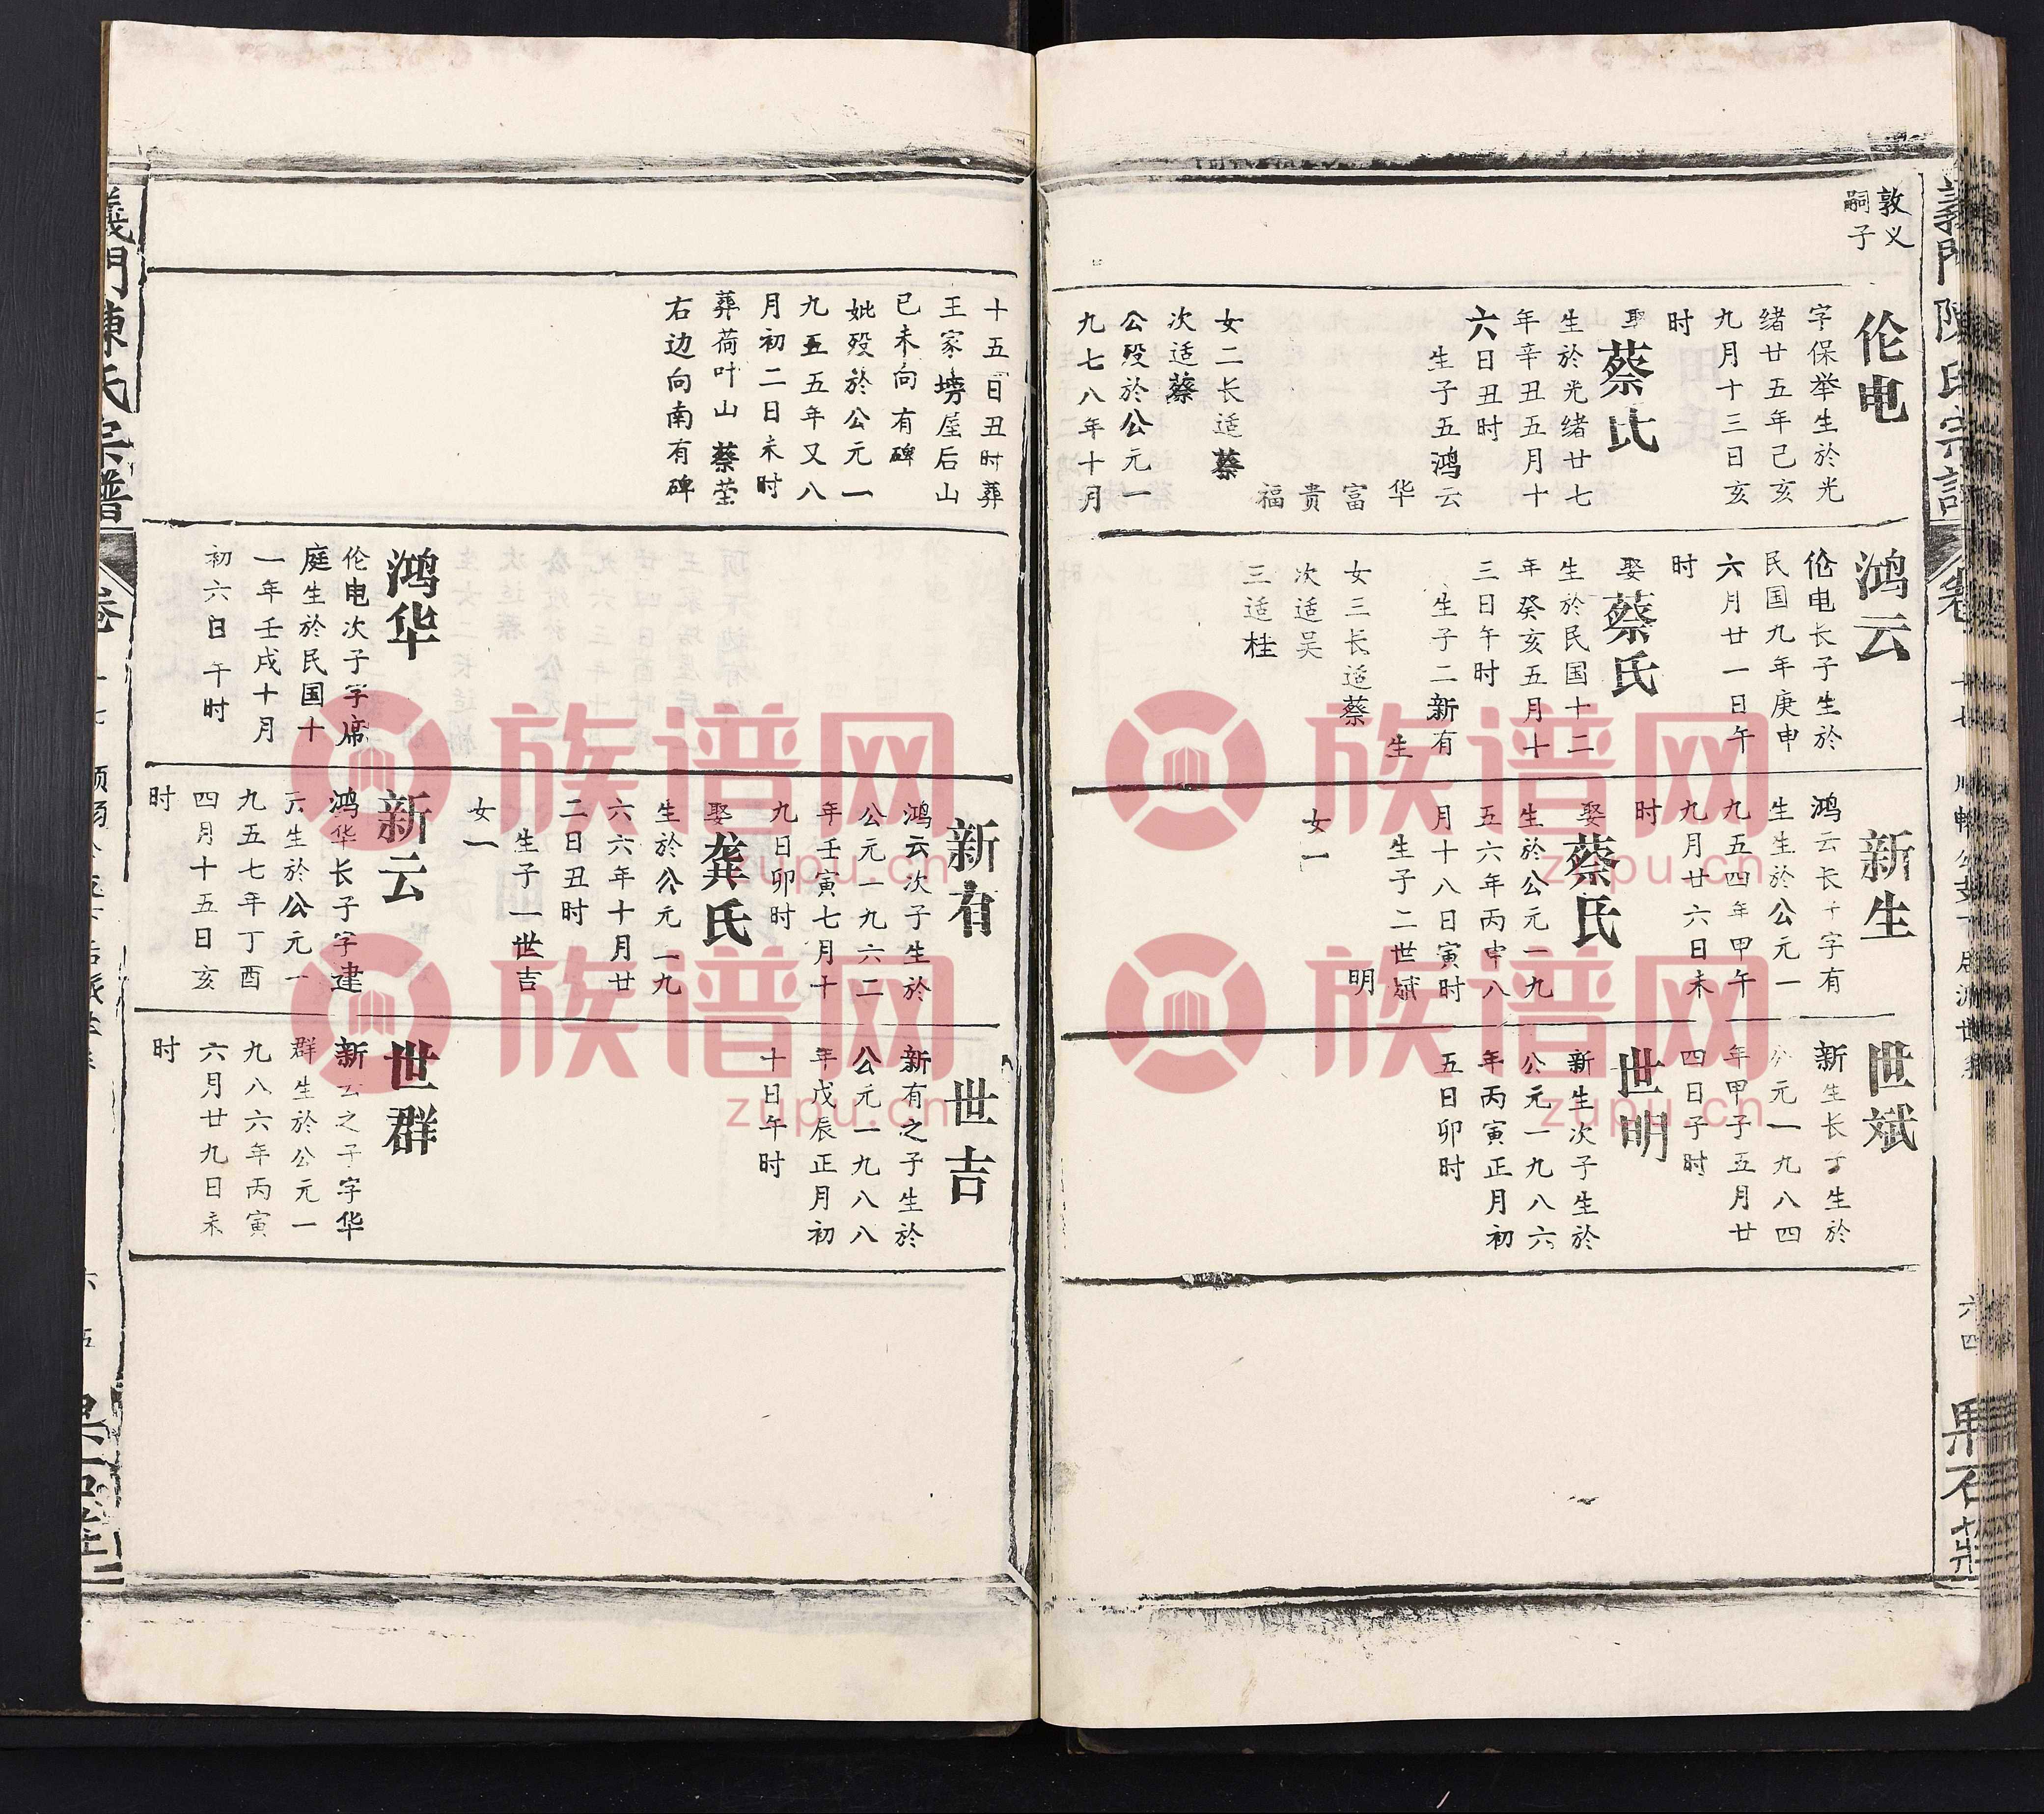 義門陳氏宗譜
卷
六四
果石莊
敦义
嗣子
伦电
字保举生於光
绪廿五年己亥
九月十三日亥
时
娶蔡氏
生於光绪廿七
年辛丑五月十
六日丑时
生子五鸿云
华
富
贵
福
女二长适蔡
次适蔡
公殁於公元一
九七八年十月
鸿云
伦电长子生於
民国九年庚申
六月廿一日午
时
娶蔡氏
生於民国十二
年癸亥五月十
三日午时
生子二新有
生
女三长适蔡
次适吴
三适桂
新生
鸿云长子字有
生生於公元一
九五四年甲午
九月廿六日未
时
娶蔡氏
生於公元一九
五六年丙申八
月十八日寅时
生子二世斌
明
女一
世斌
新生长子生於
公元一九八四
年甲子五月廿
四日子时
世明
新生次子生於
公元一九八六
年丙寅正月初
五日卯时
十五日丑时葬
王家塝屋后山
已未向有碑
妣殁於公元一
九五五年又八
月初二日未时
葬荷叶山蔡茔
右边向南有碑
鸿华
伦电次子字席
庭生於民国十
一年壬戌十月
初六日午时
新有
鸿云次子生於
公元一九六二
年壬寅七月十
九日卯时
娶龚氏
生於公元一九
六六年十月廿
二日丑时
生子一世吉
女一
新云
鸿华长子字建
元生於公元一
九五七年丁酉
四月十五日亥
时
世吉
新有之子生於
公元一九八八
年戊辰正月初
十日午时
世群
新云之子字华
群生於公元一
九八六年丙寅
六月廿九日未
时
義門陳氏宗譜
卷
六五
族谱网
zupu.cn
族谱网
zupu.cn
族谱网
zupu.cn
族谱网
zupu.cn